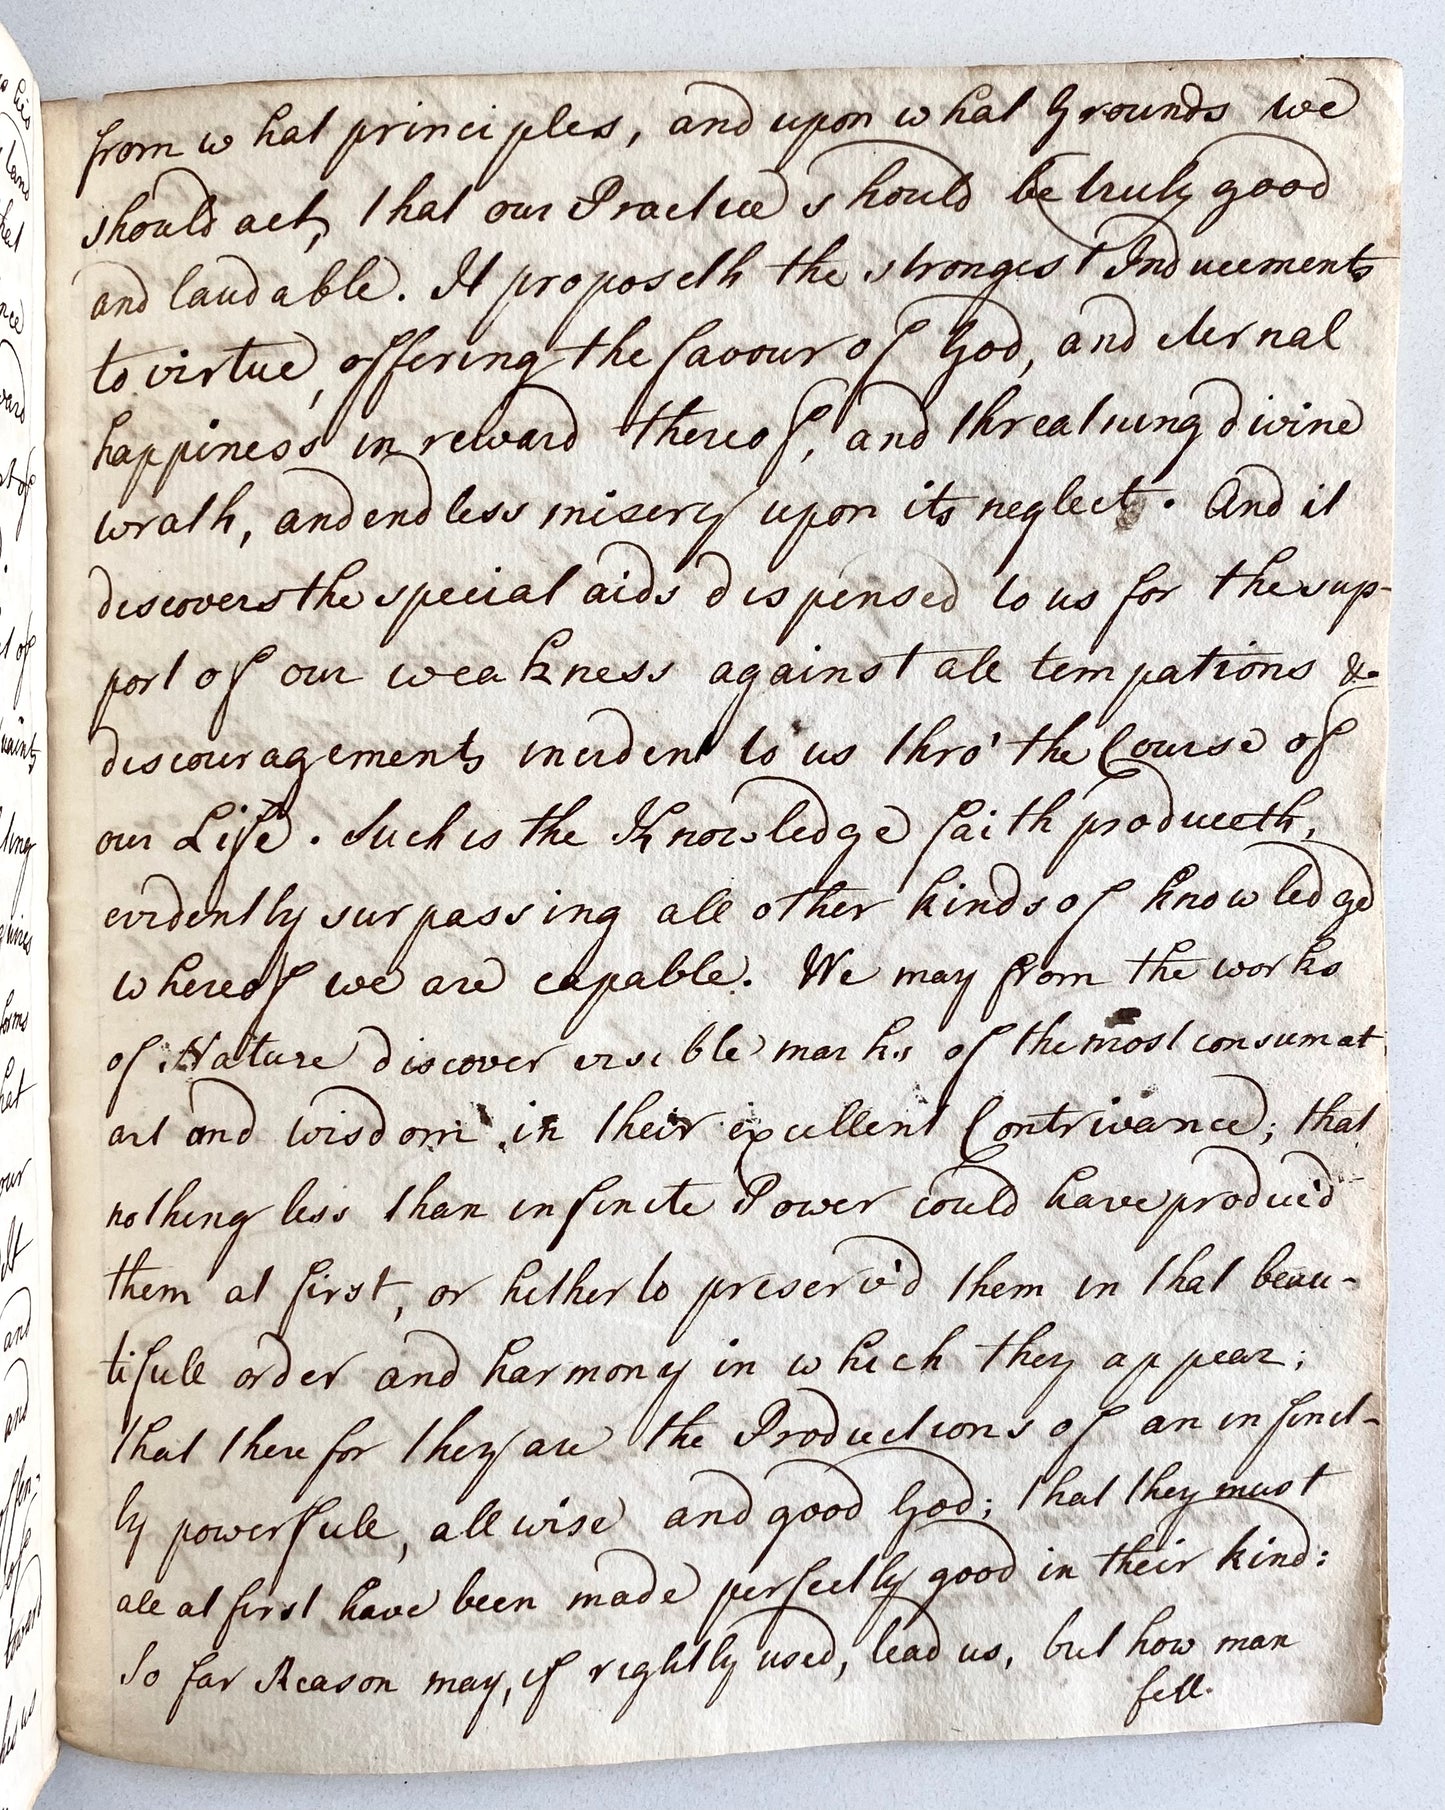 from what principles, and upon what Grounds we
should act, that our Practice should be truly good
and laudable. It proposeth the strongest Inducements
to virtue, offering the favour of God, and eternal
happiness in reward thereof, and threatning divine
wrath, and endless misery upon its neglect. And it
discovers the special aids dispensed to us for the sup-
port of our weakness against all tempations &
discouragements incident to us thro' the Course of
our Life. Such is the Knowledge faith produceth,
evidently surpassing all other kinds of knowledge
whereof we are capable. We may from the works
of Nature discover visible marks of the most consumat
art and wisdom in their excellent Contrivance; that
nothing less than infinite Power could have produc'd
them at first, or hitherto preserv'd them in that beau-
tifull order and harmony in which they appear;
that therefor they are the Productions of an infinit-
ly powerfull, all wise and good God; that they must
all at first have been made perfectly good in their kind:
So far Reason may, if rightly used, lead us, but how man
fell.